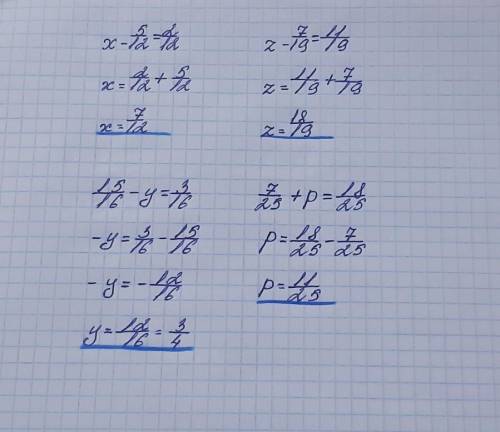 x - 5/12 = 2/12
x = 2/12 + 5/12
x = 7/12
z - 7/19 = 11/19
z = 11/19 + 7/19
z = 18/19
15/16 - y = 3/16
-y = 3/16 - 15/16
-y = -12/16
y = 12/16 = 3/4
7/25 + p = 18/25
p = 18/25 - 7/25
p = 11/25